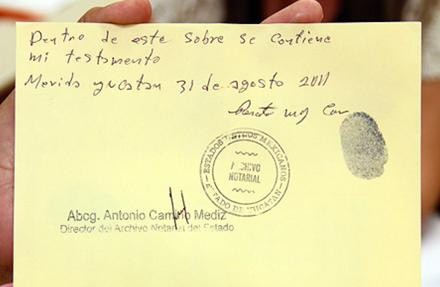 Dentro de este sobre se contiene
mi testamento
Merida yucatan 31 de agosto 2011
ESTADOS UNIDOS MEXICANOS
ARCHIVO
NOTARIAL
ESTADO DE YUCATAN
Abog. Antonio Mediz
Director del Archivo Notarial del Estado